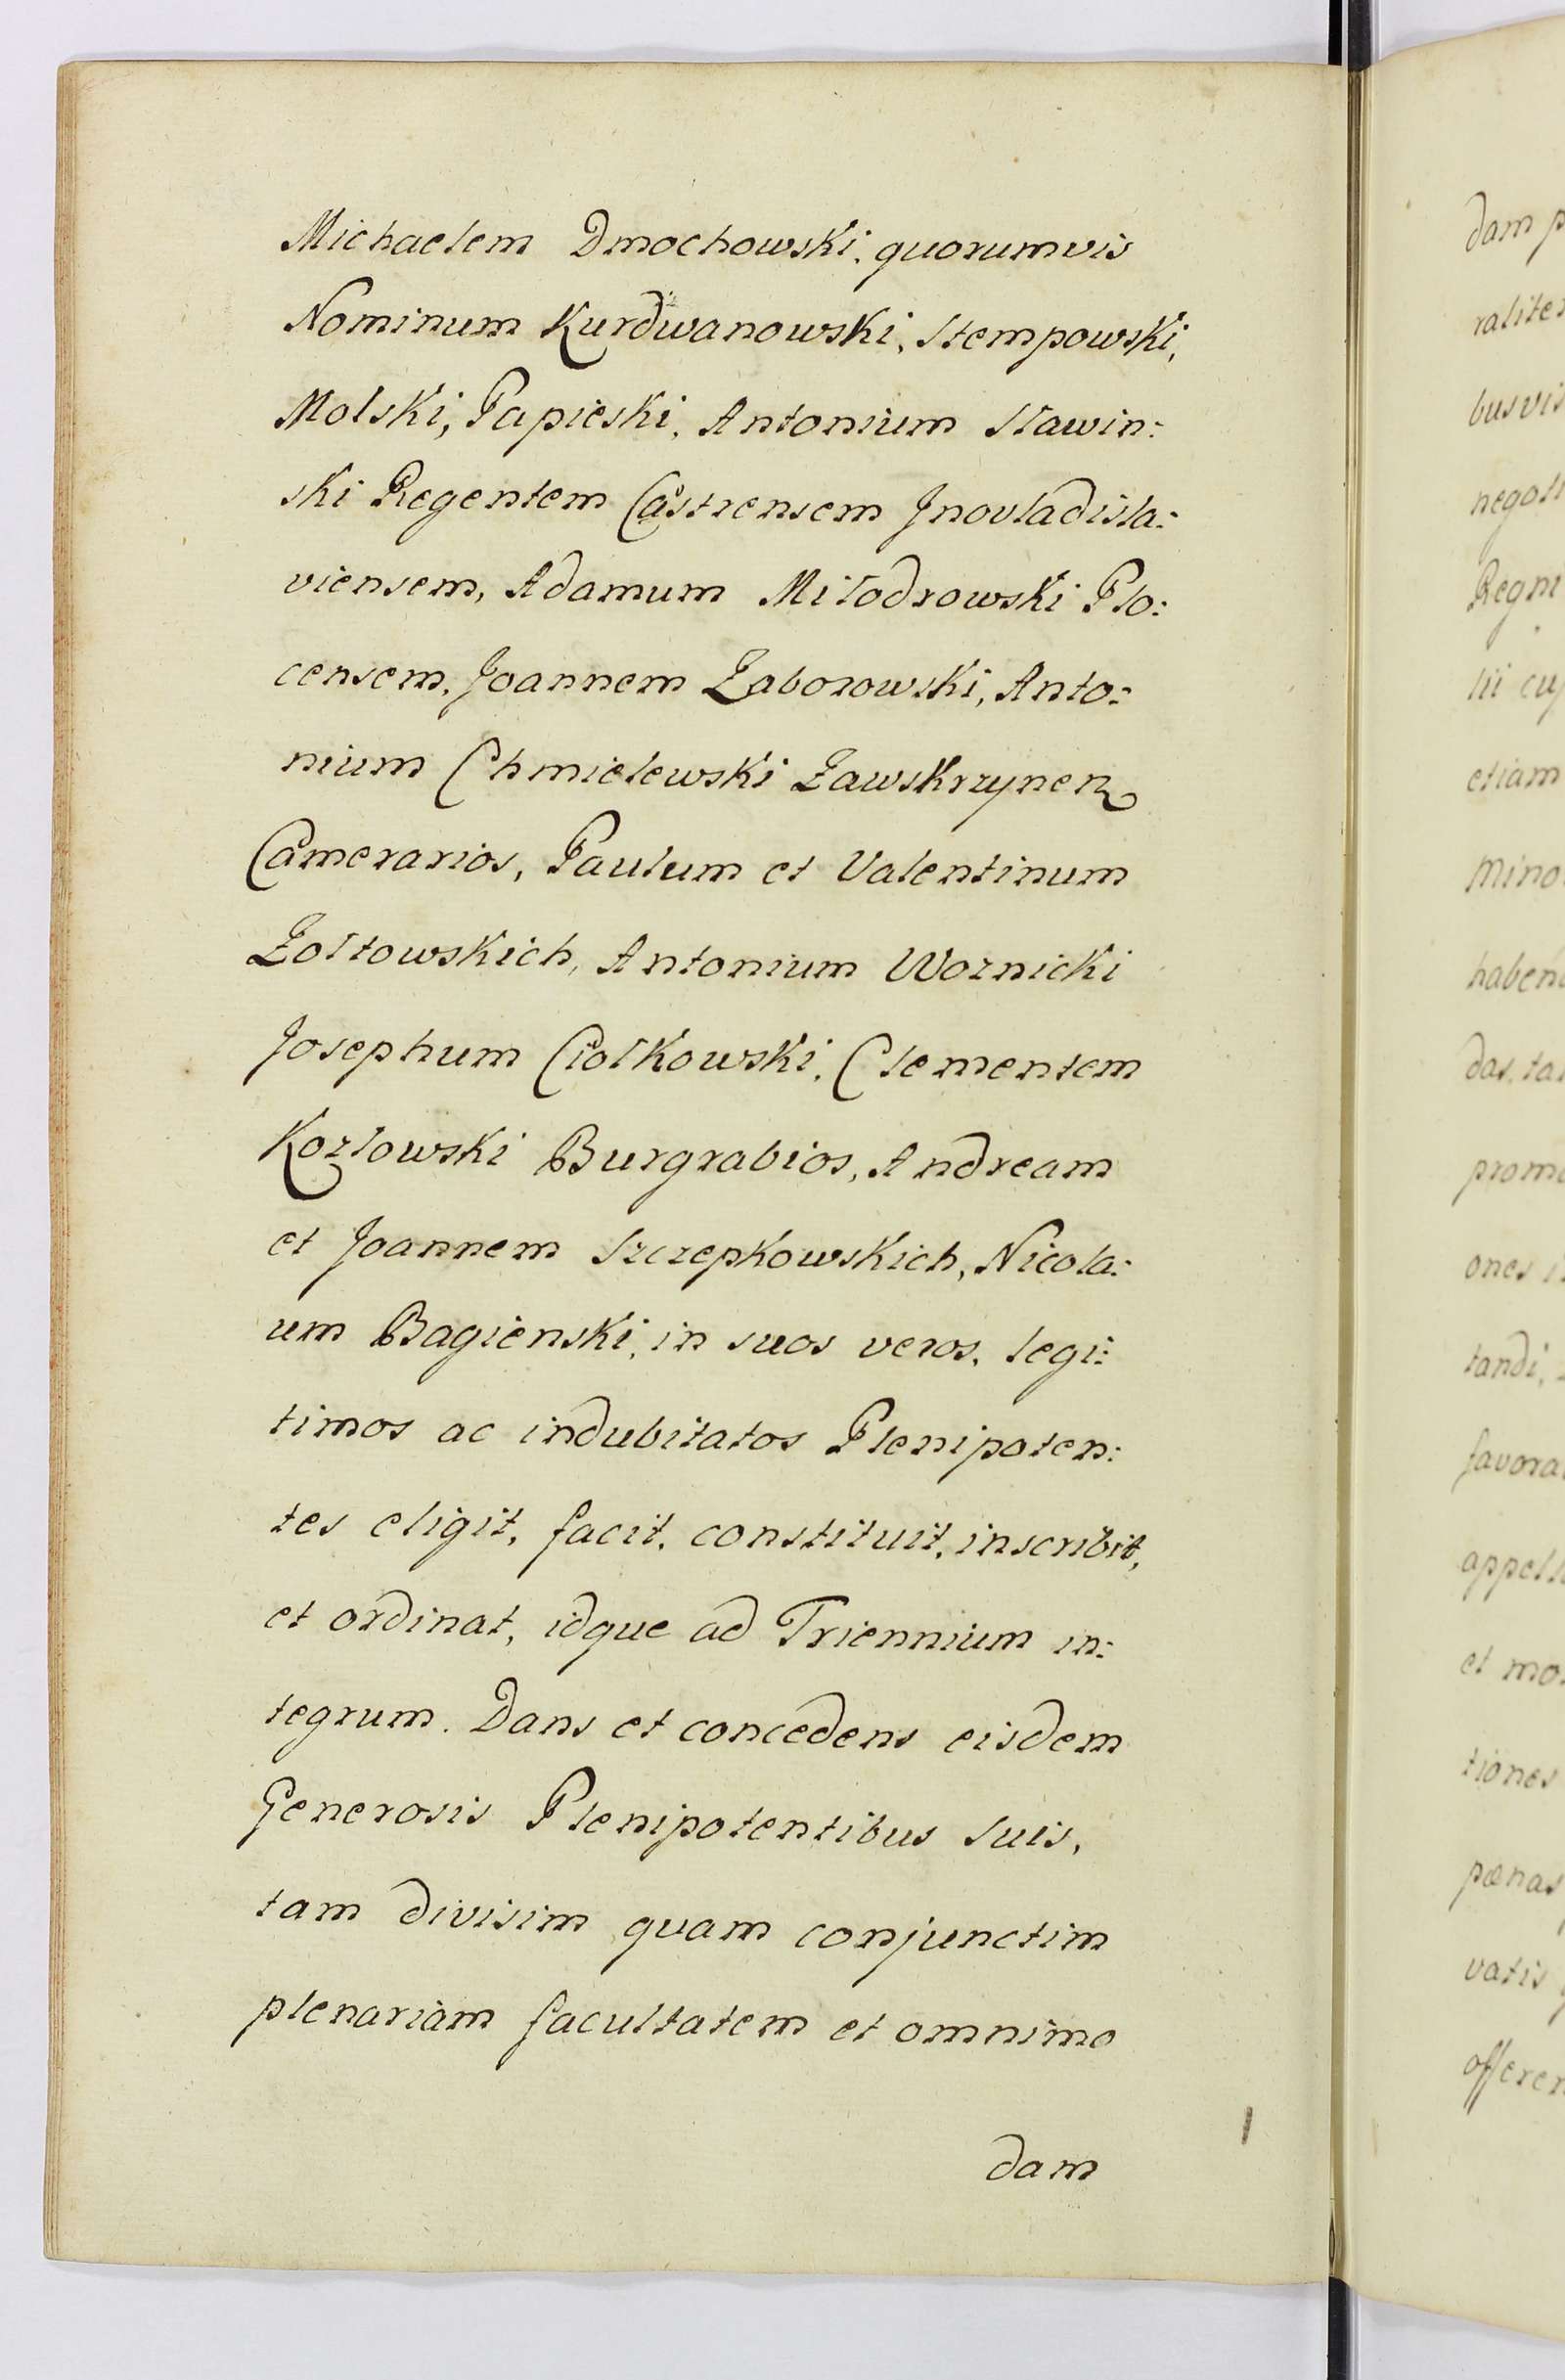 Michaelem Dmochowski, quorumvis
Nominum Kurdwanowski, Stempowski,
Molski, Papieski, Antonium Sławin:
ski Regentem Castrensem Jnovladisla:
viensem, Adamum Miłodrowski Plo:
censem, Joannem Zaborowski, Anto:
nium Chmielewski Zawskrzynen
Camerarios, Paulum et Valentinum
Zołtowskich, Antonium Woznicki
Josephum Ciołkowski, Clementem
Kozłowski Burgrabios, Andream
et Joannem Szczepkowskich, Nicola:
um Bagienski, in suos veros, legi:
timos ac indubitatos Plenipoten:
tes eligit, facit, constituit, inscribit,
et ordinat, idque ad Triennium in:
tegrum. Dans et concedens eisdem
Generosis Plenipotentibus suis,
tam divisim quam conjunctim
plenariam facultatem et omnimo
dam
dam
busvis
Regni
etiam
Mino
das, ta
ones
tandi,
et mo
tiones
pœnas
vatis